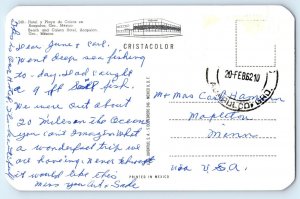 Hotel y Playa de Caleta en
Acapulco, Gro., Mexico
Beach and Caleta Hotel, Acapulco,
Gro., Mexico
CRISTACOLOR
Dear June & Carl.
Went deep sea fishing
to-day. Dad caught
a 9 ft sail fish.
We were out about
20 miles on the Ocean
you can't imagine what
a wonderful trip we
are having. Never thought
it would like this
Miss you Art & Sade
29 FEB 62 10
ACAPULCO, GRO.
Mr & Mrs Carl
Mapleton
Minn.
USA
PRINTED IN MEXICO